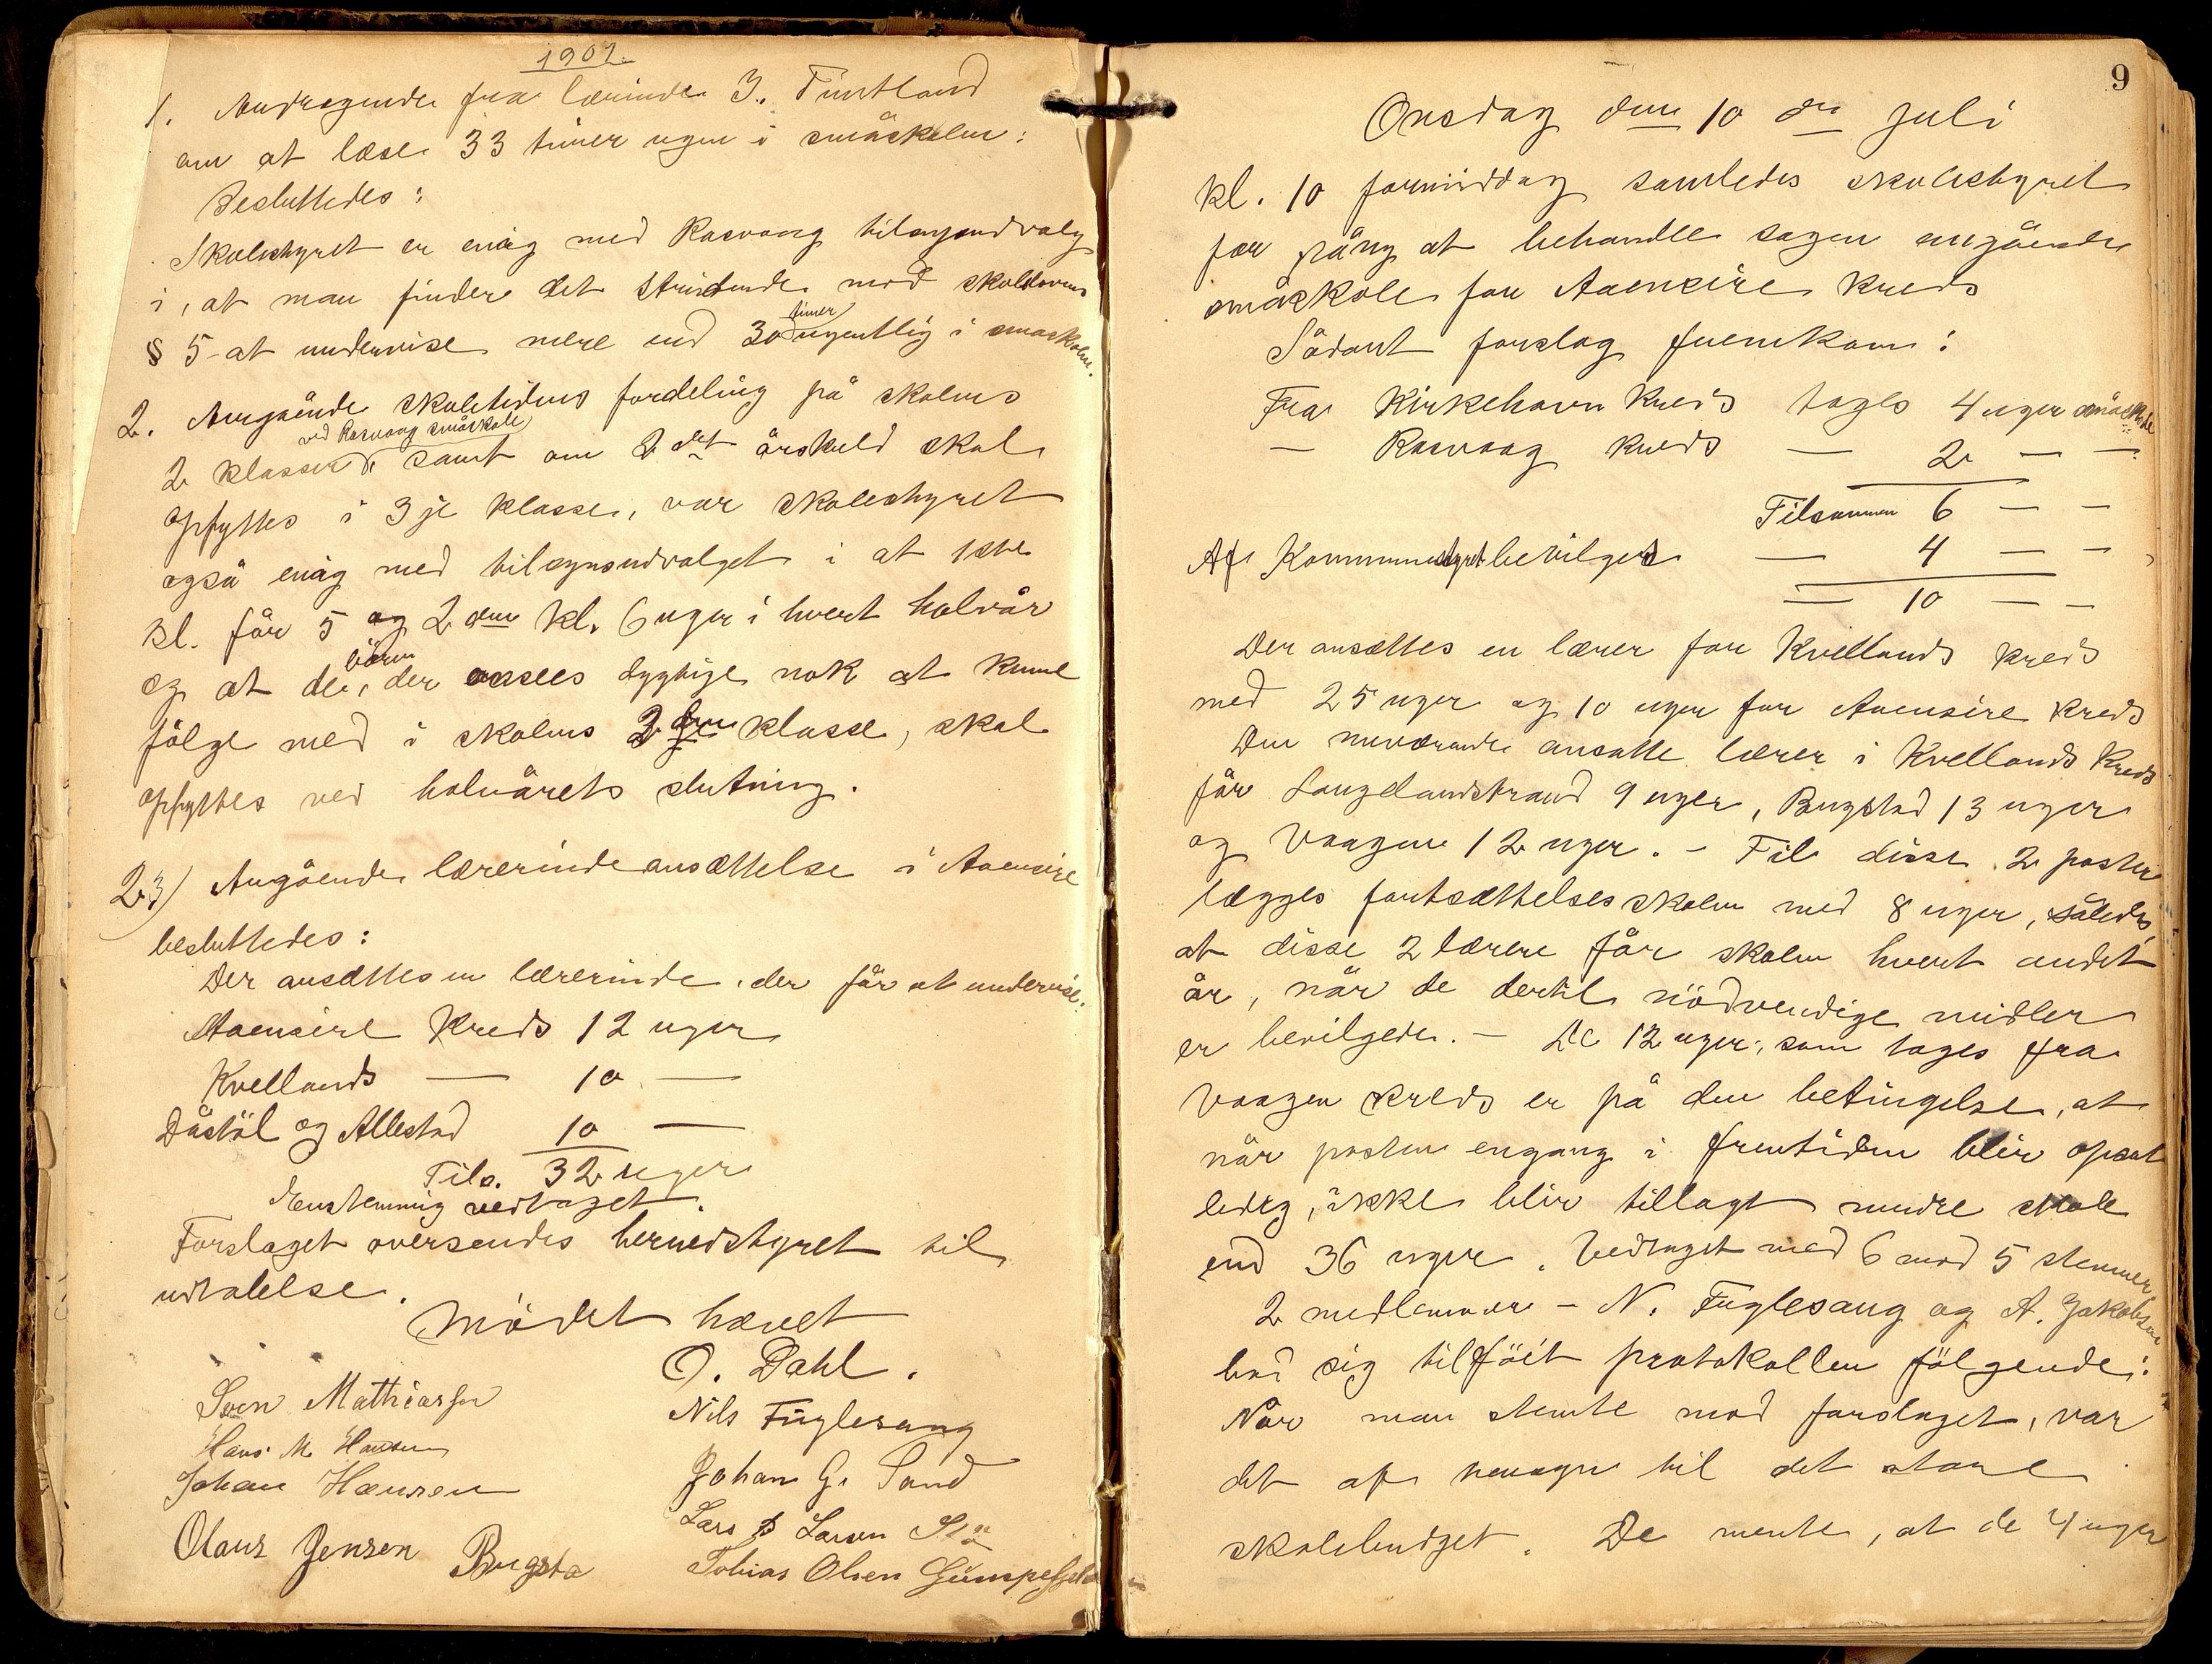 1907.
1. Andragende fra lærinde J. Tuntland
om at læse 33 timer ugen i småskolen:
Besluttedes:
Skolestyret er enig med Rasvaag tilsynsudvalg
i, at man finder det stridende mod skolelovens
timer
§ 5 at undervise mere end 30 ugentlig i smaskolen.
2. Angående skoletidens fordeling på skolens
ved Rasvaag småskole
2 klasser, samt om 2det årskuld skal
opflyttes i 3je klasse, var skolestyret
også enig med tilsynsudvalget i at 1ste
kl. får 5 og 2den kl. 6 uger i hvert halvår
børn
og at de, der ansees dygtige nok at kunne
følge med i skolens klasse, skal
opflyttes ved halvårets slutning.
3) Angående lærerindeansættelse i Aaensire
besluttedes:
Der ansættes en lærerinde, der får at undervise.
Aaensire Kreds 12 uger
Kvellands — 10 —
Dåstöl og Allestad 10 —
Tils. 32 uger
Enstemmig vedtaget.
Forslaget oversendes herredstyret til
udtalelse.
Mödet hævet
O. Dahl.
Sven Mathiassen
Nils Fuglesang
Hans M. Hansen
Johan G. Sand
Johan Hansen
Lars Larsen
Olaus Jensen Bugsta
Tobias Olsen Gumpefjeld
9
Onsdag den 10de Juli
kl. 10 formiddag samledes skolestyret
for gång at behandle sagen angående
småskole for Aaensire Kreds
Sådant forslag fremkom:
Fra Kirkehavn Kreds tages 4 uger småskole
— Rasvaag kreds — 2 — —
Tilsammen 6 — —
Af Kommunestyret bevilges — 4 — —
— 10 — —
Der ansættes en lærer for Kvellands kreds
med 25 uger og 10 uger for Aaensire kreds
Den nuværende ansatte lærer i Kvellands Kreds
får Laugelandstrand 9 uger, Bugstad 13 uger
og Vaagen 12 uger. - Til disse 2 poster
lægges fortsættelsesskolen med 8 uger, således,
at disse 2 lærere får skolen hvert andet
år, når de dertil nödvendige midler
er bevilgede. - De 12 uger, som tages fra
Vaagen kreds er på den betingelse, at
når posten engang i fremtiden blir opsat
ledig, ikke blir tillagt mindre skole
end 36 uger. Vedtaget med 6 mod 5 stemmer
2 medlemmer - N. Fuglesang og A. Jakobsen
bad sig tilföit protokollen fölgende:
Når man stemte mod forslaget, var
det af hensyn til det store
skolebudget. De mente, at de 4 uger